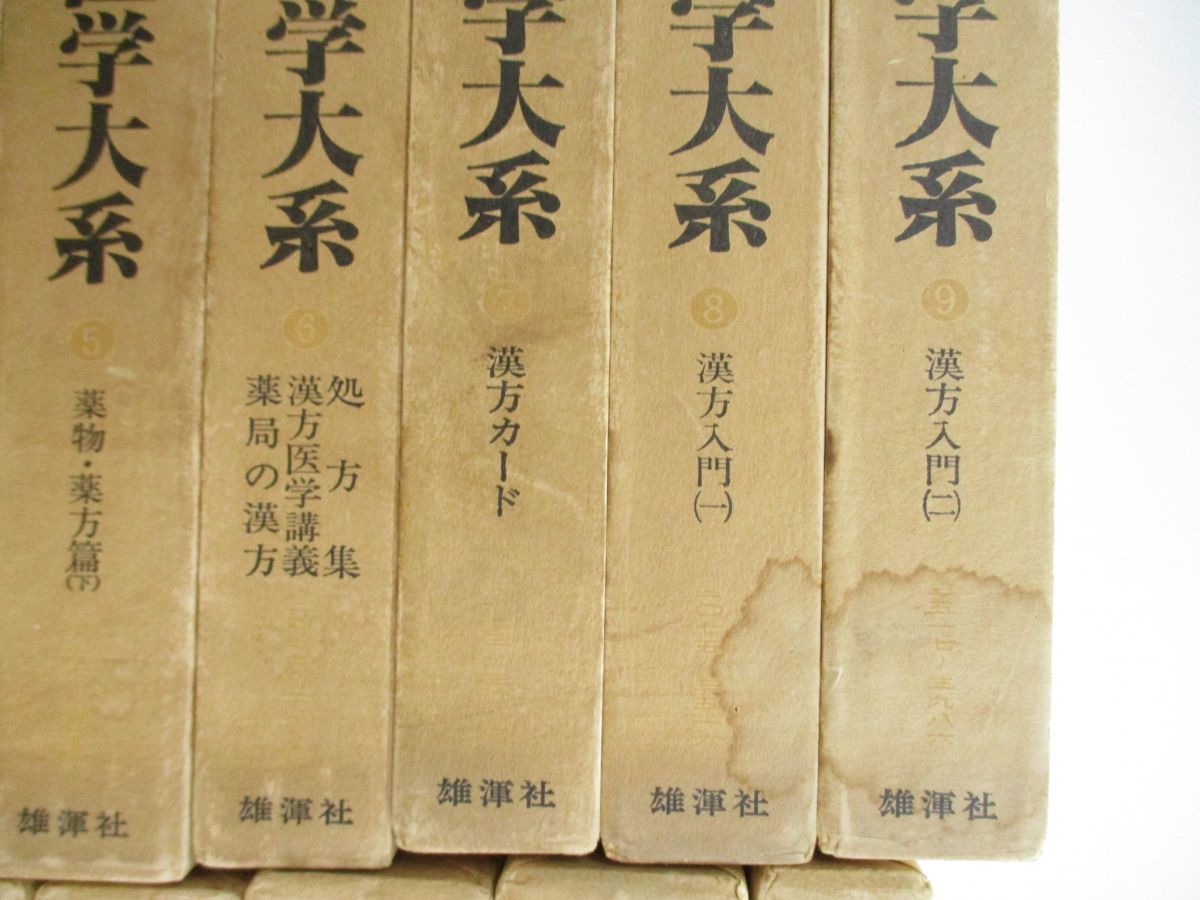 医学大系
5
薬物・薬方篇(下)
雄渾社
学大系
6
処方集
漢方医学講義
薬局の漢方
雄渾社
学大系
7
漢方カード
雄渾社
学大系
8
漢方入門(一)
雄渾社
学大系
9
漢方入門(二)
雄渾社